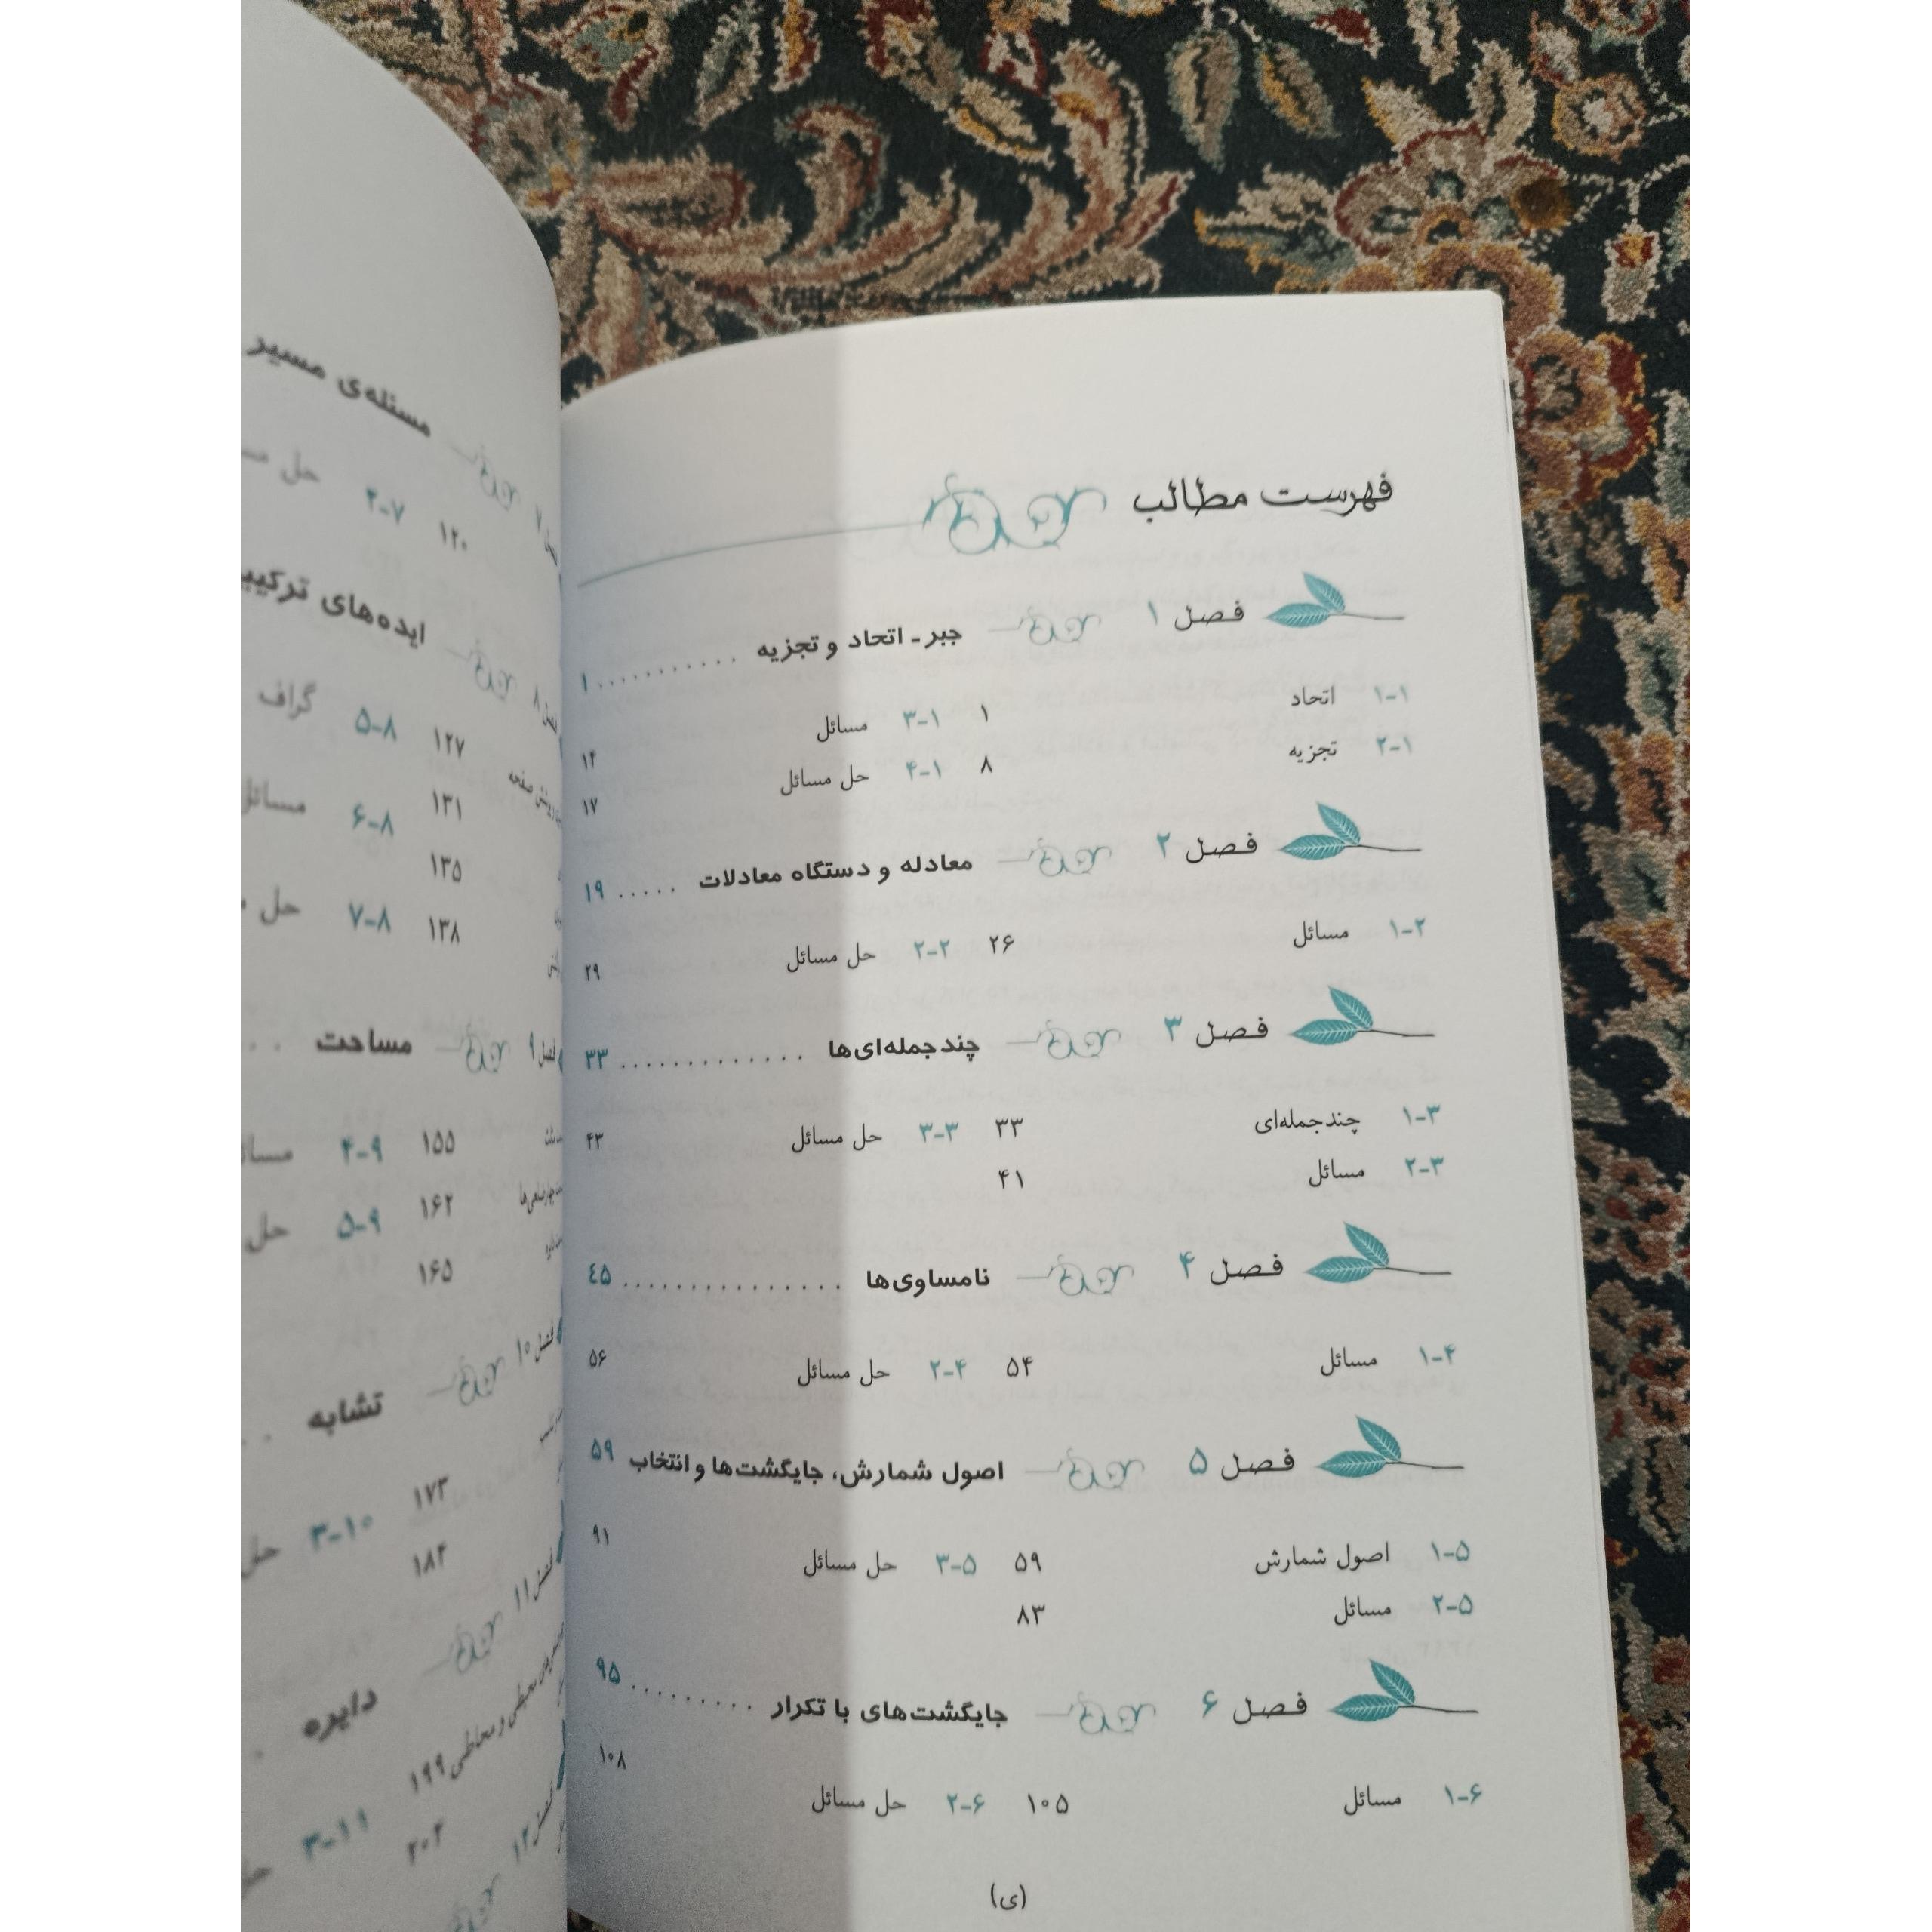 فهرست مطالب
فصل ۱ جبر ـ اتحاد و تجزیه . . . . . . . . . . . ۱
۱-۱ اتحاد ۱ ۱-۳ مسائل ۱۴
۱-۲ تجزیه ۸ ۱-۴ حل مسائل ۱۷
فصل ۲ معادله و دستگاه معادلات . . . . . ۱۹
۲-۱ مسائل ۲۶ ۲-۲ حل مسائل ۲۹
فصل ۳ چندجمله‌ای‌ها . . . . . . . . . . . . . . ۳۳
۳-۱ چندجمله‌ای ۳۳ ۳-۳ حل مسائل ۴۳
۳-۲ مسائل ۴۱
فصل ۴ نامساوی‌ها . . . . . . . . . . . . . . . . . ۴۵
۴-۱ مسائل ۵۴ ۴-۲ حل مسائل ۵۶
فصل ۵ اصول شمارش، جایگشت‌ها و انتخاب ۵۹
۵-۱ اصول شمارش ۵۹ ۵-۳ حل مسائل ۹۱
۵-۲ مسائل ۸۳
فصل ۶ جایگشت‌های با تکرار . . . . . . . . . . ۹۵
۶-۱ مسائل ۱۰۵ ۶-۲ حل مسائل ۱۰۸
(ی)
فصل ۷ مسئله‌ی مسیر
۱۲۰ ۷-۲ حل
فصل ۸ ایده‌های
۱۲۷ ۸-۵ گراف
۱۳۱ ۸-۶ مسائل
۱۳۵
۱۳۸ ۸-۷ حل
فصل ۹ مساحت . .
۱۵۵ ۹-۴
۱۶۲ ۹-۵ حل
۱۶۵
فصل ۱۰ تشابه . .
۱۷۳ ۱۰-۳ حل
۱۸۴
فصل ۱۱ دایره .
محیطی و محاطی ۱۹۹ ۱۱-۳
۲۰۲
فصل ۱۲